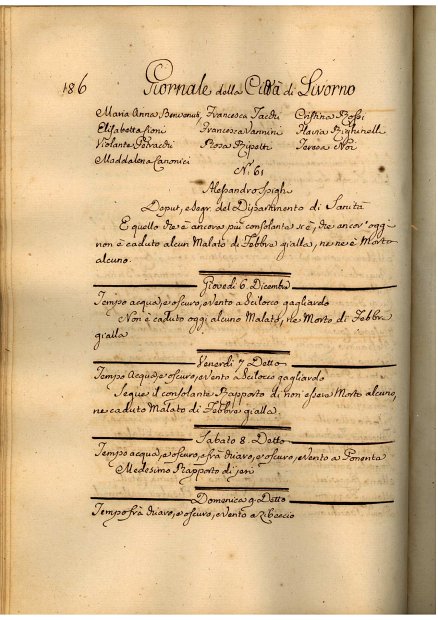 186 Giornale della Città di Livorno
Maria Anna Benvenuti, Francesca Tacchi Cristina Rossi
Elisabetta Fioni Francesca Vannini Flavia Righinelli
Violante Petracchi Rosa Ripolti Teresa Noi
Maddalena Canonici
N. 61
Alessandro Spighi
Deput. e Segr. del Dipartimento di Sanità
E quello che è ancora più consolante si è, che ancor'oggi
non è caduto alcun Malato di Febbre gialla, ne ne è Morto
alcuno.
Giovedi 6. Dicembre
Tempo acqua, e oscuro, e vento a Scilocco gagliardo
Non è caduto oggi alcuno Malato, ne Morto di Febbre
gialla
Venerdi 7 Detto
Tempo Acqua, e oscuro, e vento a Scilocco gagliardo
Segue il consolante Rapporto di non essere Morto alcuno,
ne caduto Malato di Febbre gialla.
Sabato 8. Detto
Tempo acqua, e oscuro, e frà chiaro, e oscuro, e vento a Ponente
Medesimo Rapporto di jeri
Domenica 9. Detto
Tempo frà chiaro, e oscuro, e vento a Libeccio